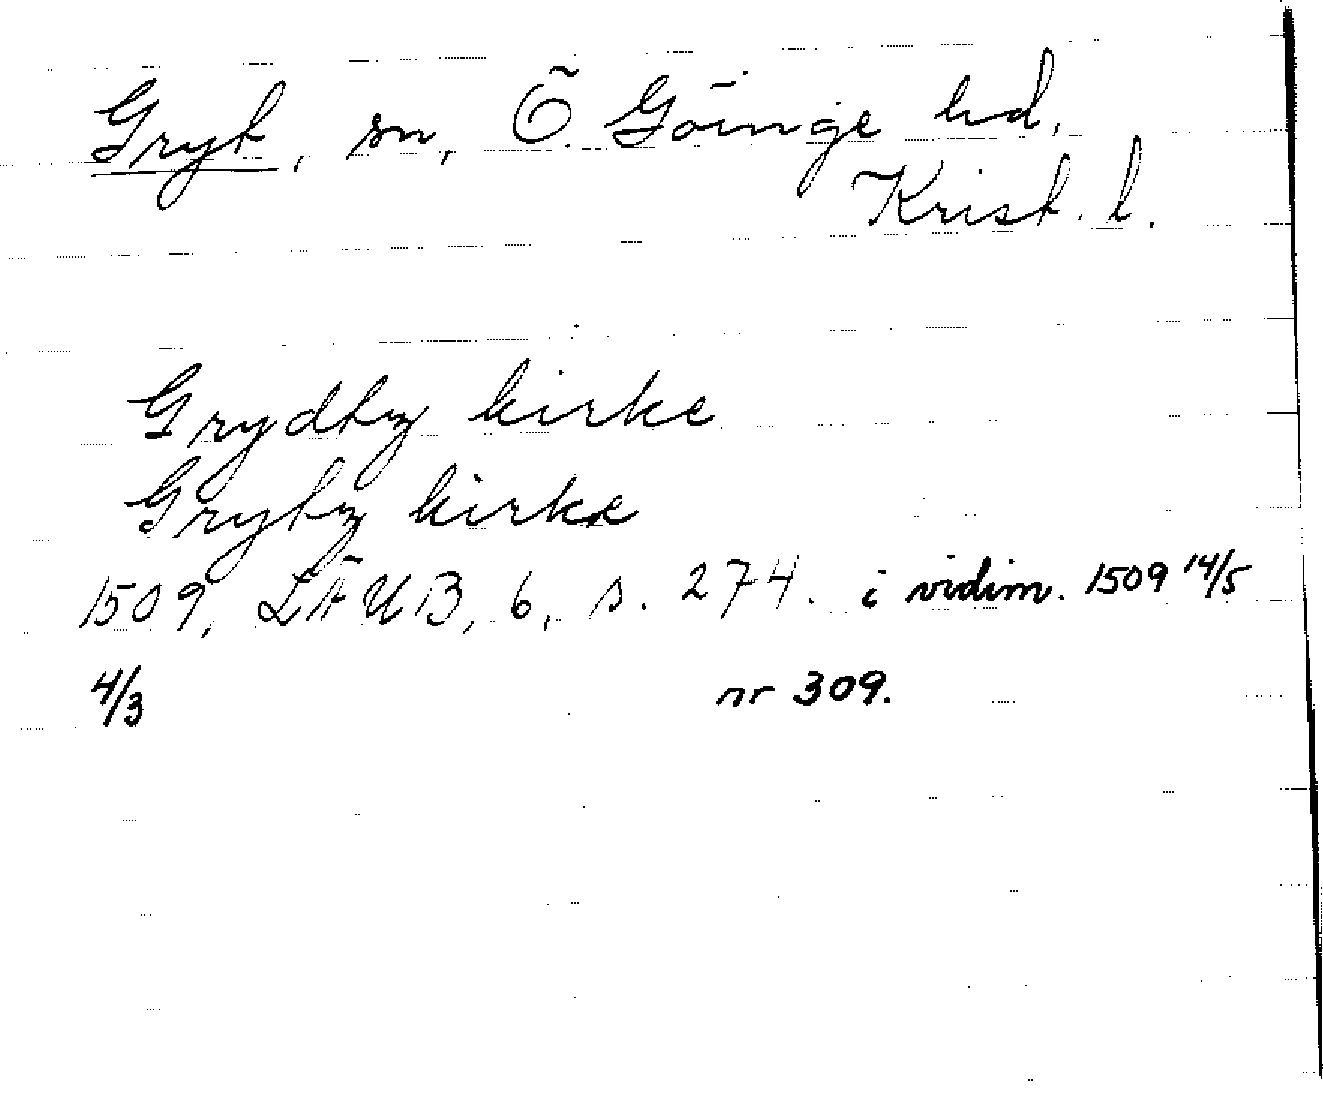 Gryt, sn, Ö. Göinge hd,
Krist. l.
Grydtz kirke
Grytz kirke
1509, LÄUB, 6, s. 274. i vidim. 1509 14/5
4/3 nr 309.